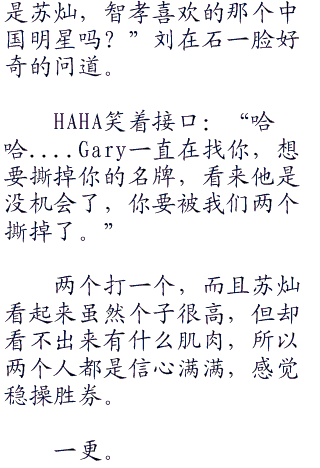 是苏灿，智孝喜欢的那个中
国明星吗？”刘在石一脸好
奇的问道。
HAHA笑着接口：“哈
哈....Gary一直在找你，想
要撕掉你的名牌，看来他是
没机会了，你要被我们两个
撕掉了。”
两个打一个，而且苏灿
看起来虽然个子很高，但却
看不出来有什么肌肉，所以
两个人都是信心满满，感觉
稳操胜券。
一更。